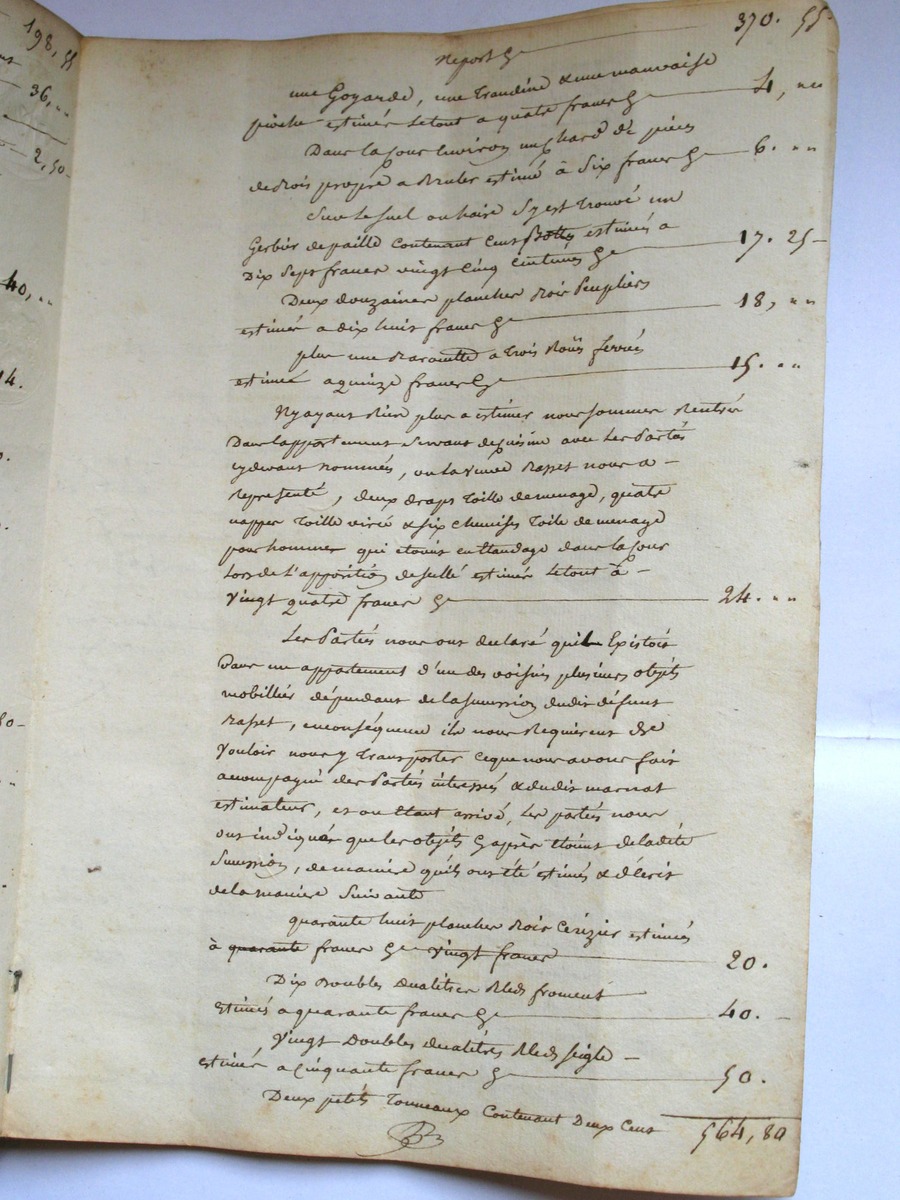 198, 55
36, ..
2, 50
40, ..
14.
Report 370. 55
une Goyarde, une Traudine & une mauvaise
pioche estimés Letout a quatre francs 4, ""
Dans la Cour Environ un Chard de pieces
de Bois propre a Bruler estimé à Six francs 6. ""
Sur le Suel ou haire Sy est Trouvé un
Gerbier de paille Contenant Cent Bottes estimés a
Dix Sept francs vingt Cinq Centimes 17. 25
Deux douzaines planches Bois Peupliers
estimés a dix huit francs 18, ""
plus une Barouette a Trois Roües ferrées
estimée a quinze francs 15. ""
Ny ayant Rien plus a estimer nous sommes Rentrés
Dans lappartement Servant de Cuisine avec Les Partés
cy devant nommés, ou La veuve Rasset nous a
Representé, deux draps Toille de menage, quatre
nappes Toille & six chemises Toile de menage
pour hommes qui etoient en dans la Cour
Lors de L'apposition de scellé estimés Letout à
Vingt quatre francs 24. ""
Les Partiés nous ont declaré quil Existoit
Dans un appartement d'un des voisins plusieurs objets
mobilliés dépendant de la succession dudit défunt
Rasset, en conséquence ils nous Requierent de
Vouloir nous y Transporter Ceque nous avons fait
acompagné des Partiés interessés & dudit marnat
estimateur, et ou Etant arrivé, Les partés nous
ont indiqués que les objets Cy après Etoient deladite
Succession, de maniere quils ont été estimés & décrit
dela maniere Suivante
quarante huit planches Bois Cerizier estimés
à quarante francs vingt francs 20.
Dix Doubles Bled froment
Estimés a quarante francs 40.
Vingt Doubles Bled seigle
estimés a Cinquante francs 50.
Deux petits Tonneaux Contenant Deux Cent 564, 80